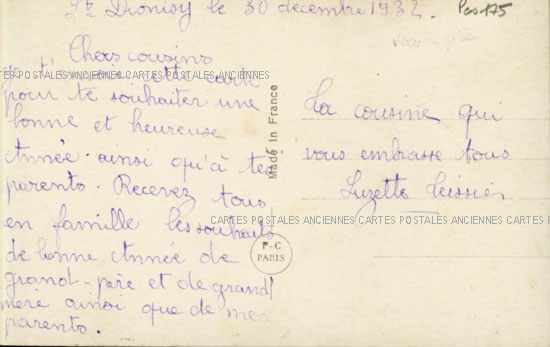 St Dionisy le 30 décembre 1932.
Pcs 175
Chers cousins
cette carte
pour te souhaiter une
bonne et heureuse
Année. ainsi qu'à tes
parents. Recevez tous
en famille les souhaits
de bonne Année de
grand-père et de grand
mère ainsi que de mes
parents.
La cousine qui
vous embrasse tous
Luzette Teissier
Made In France
P-C
PARIS
CARTES POSTALES ANCIENNES CARTES POSTALES ANCIENNES
CARTES POSTALES ANCIENNES CARTES POSTALES ANCIENNES CARTES